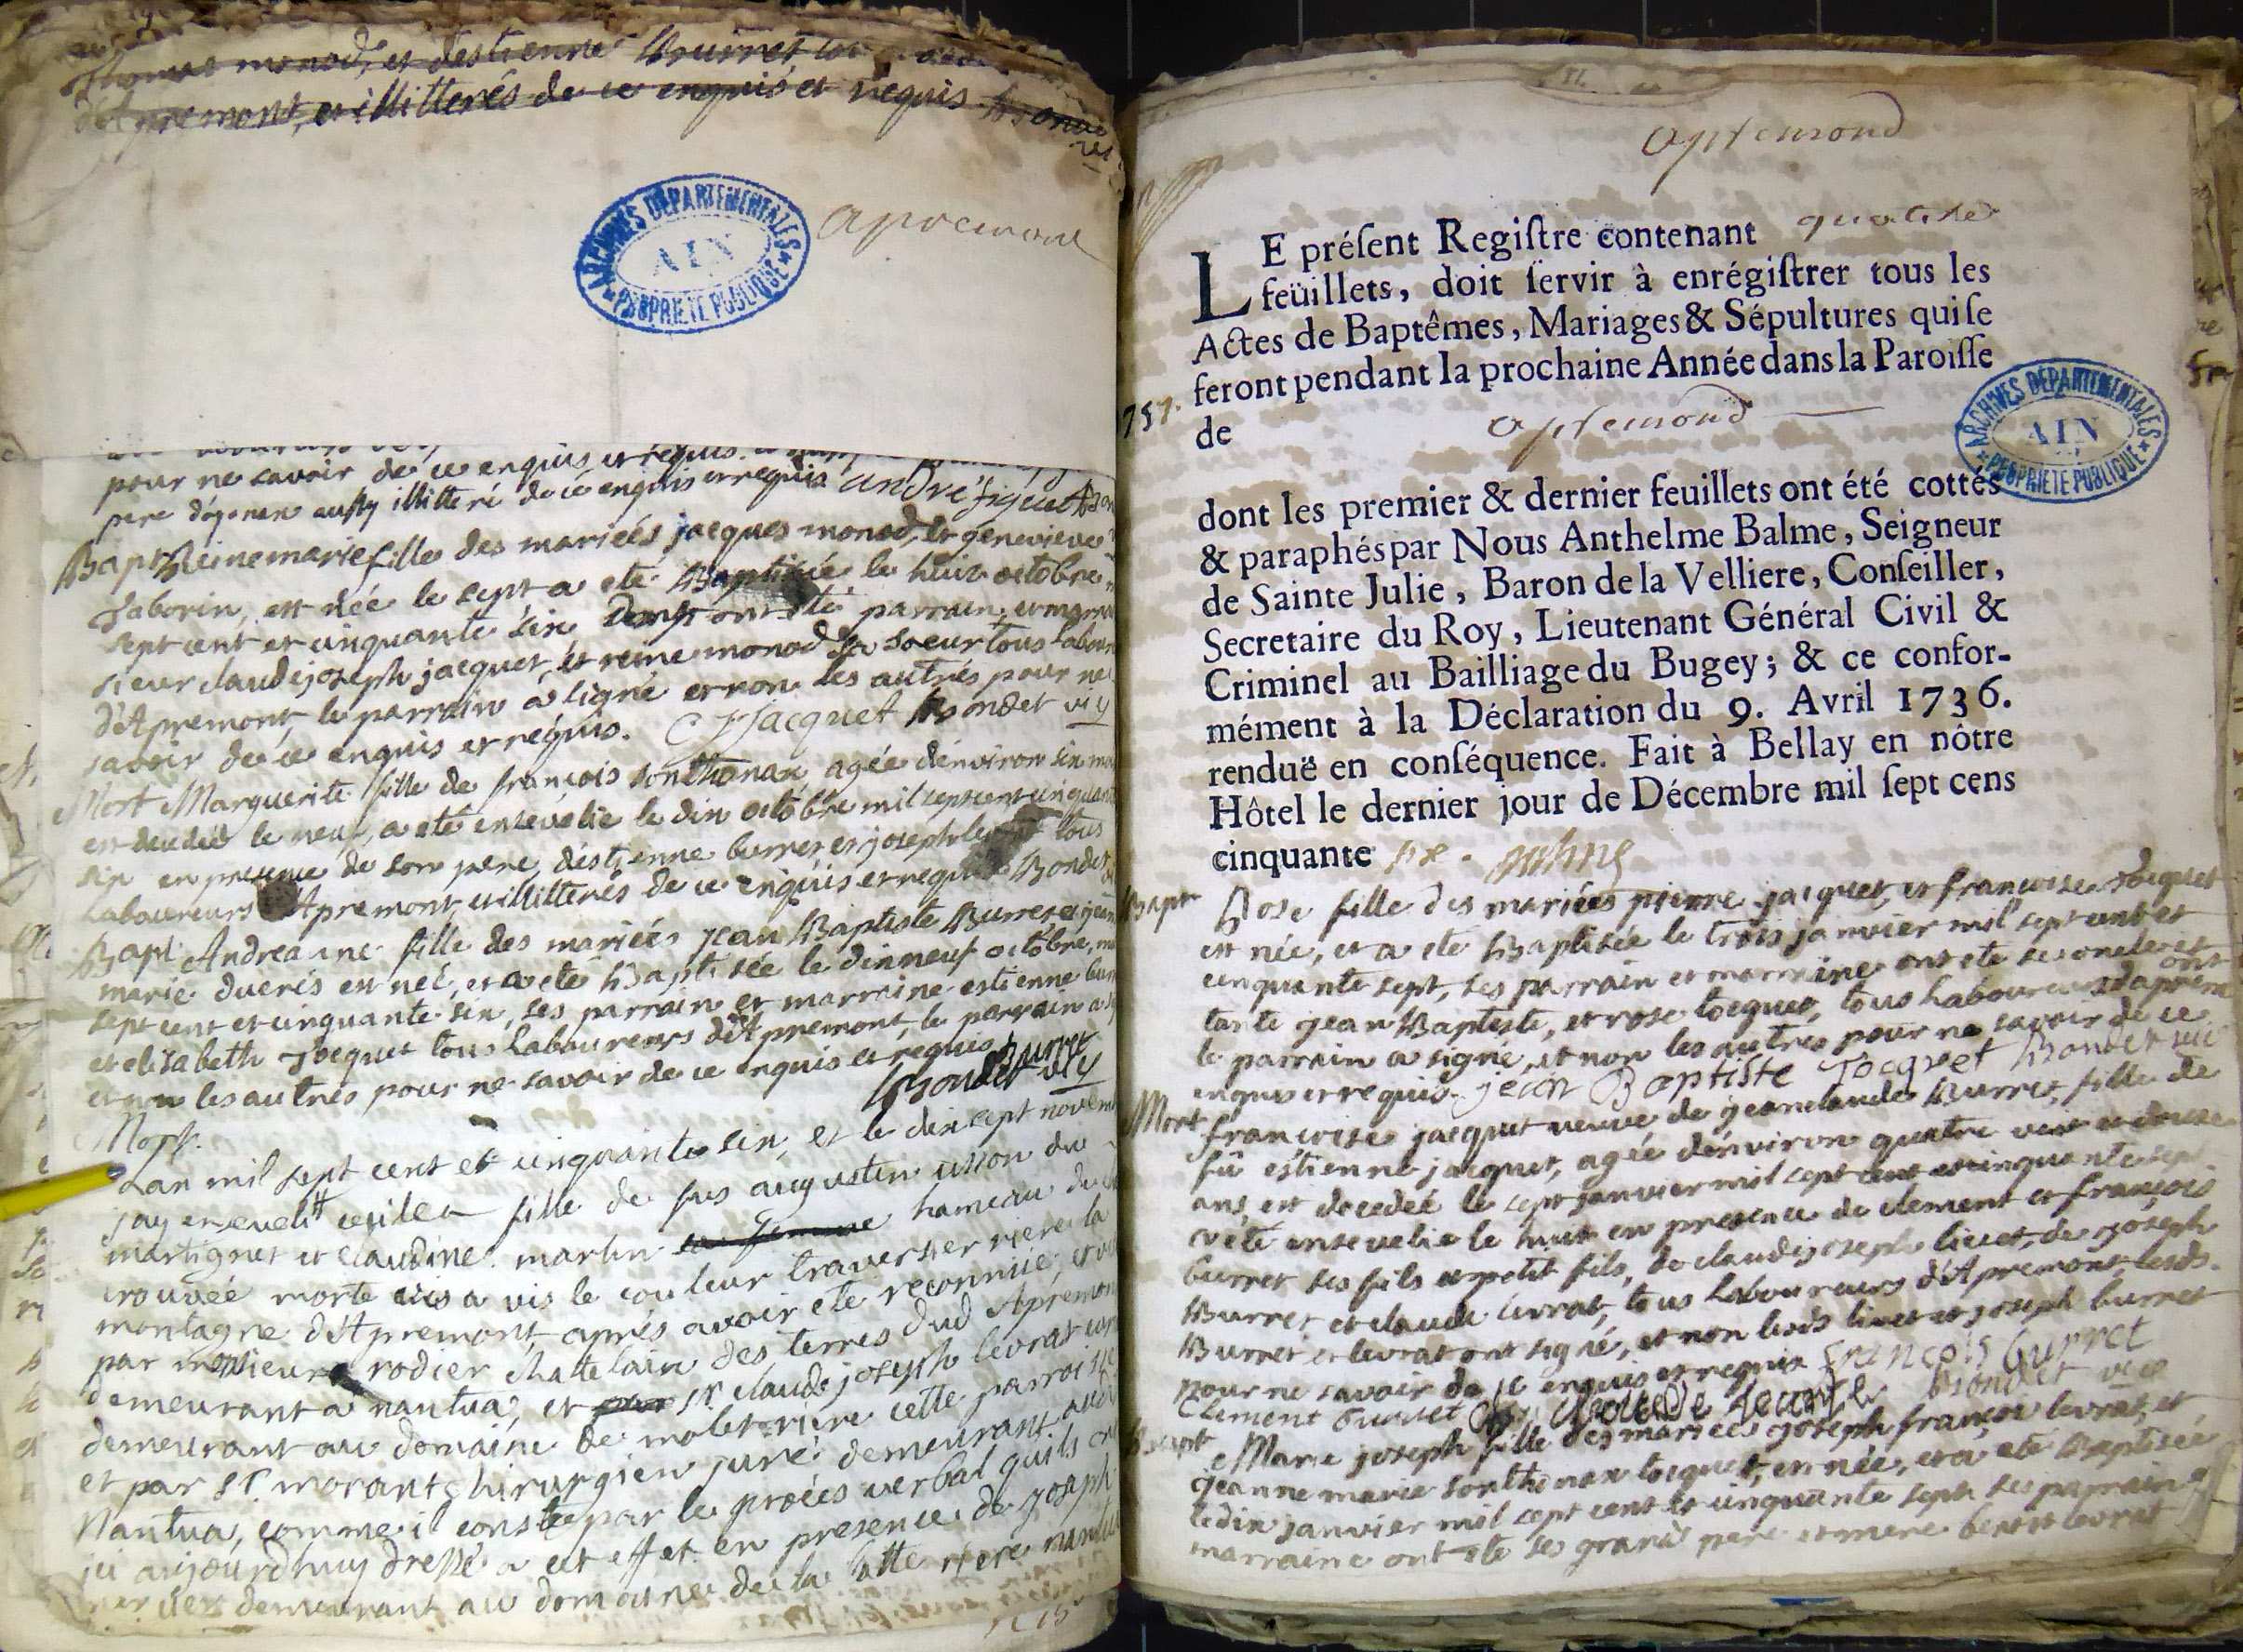 Thomas monod, et destienne Burret
dapremont, et illitterés de ce enquis et requis Bondet
vic
ARCHIVES DÉPARTEMENTALES
AIN
PROPRIÉTÉ PUBLIQUE
apremont
pour ne savoir de ce enquis et requis
pere d'oyonen aussy illitteré de ce enquis et requis andré figuet Bon
Bapt Reine marie fille des mariées jacques monod, et genevieve
Taborin, est née le sept a eté Baptisée le huit octobre
sept cent et cinquante six, ont été parrain, et marra
sieur claudejoseph jacquet, et reine monod sa soeur tous labour
d'Apremont, le parrain a signé et non les autrés pour ne
savoir de ce enquis et requis. CJJacquet Bondet vic
Mort Marguerite fille de françois sonthonax, agée d'environ six mo
est decedeé le neuf, a eté ensevelie le dix octobre mil sept cent cinquante
six en presence de son pere, d'estienne burret et joseph levrat tous
Laboureurs d'Apremont, et illitterés de ce enquis et requis Bondet
Bapt Andreanne fille des mariées jean Baptiste Burret et jean
marie duerés est neé, et a eté Baptisée le dixneuf octobre, m
sept cent et cinquante six, ses parrain et marraine estienne bur
et elisabeth Tocquet tous Laboureurs d'Apremont, le parrain a s
et non les autrés pour ne savoir de ce enquis et requis. Burret
Bondet vic
Mort.
Lan mil sept cent et cinquante six, et le dix sept novem
jay enseveli cecilea fille de fus augustin usson du
martignet et claudine martin sa femme hameau du
trouvée morte vis a vis le couleur traversier riere la
montagne d'Apremont, aprés avoir eté reconnüe, et v
par messieurs rodier chatelain des terres dud Apremon
demeurant a nantua, et par sr. claude joseph levrat
demeurant au domaine de molet riere cette parroisse
et par sr. morant chirurgien juré demeurant aud
Nantua, comme il conste par le procés verbal quils on
ici aujourdhuy dressé a cet effet en presence de joseph
demeurant au domaine de la latte riere nantua
apremond
LE présent Registre contenant quatre
feüillets, doit servir à enrégistrer tous les
Actes de Baptêmes, Mariages & Sépultures qui se
feront pendant la prochaine Année dans la Paroisse
757.
de apremond
ARCHIVES DÉPARTEMENTALES
AIN
PROPRIÉTÉ PUBLIQUE
dont les premier & dernier feuillets ont été cottés
& paraphés par Nous Anthelme Balme, Seigneur
de Sainte Julie, Baron de la Velliere, Conseiller,
Secretaire du Roy, Lieutenant Général Civil &
Criminel au Bailliage du Bugey; & ce confor-
mément à la Déclaration du 9. Avril 1736.
renduë en conséquence. Fait à Bellay en nôtre
Hôtel le dernier jour de Décembre mil sept cens
cinquante six.
Bapt Rose fille des mariées pierre jacquet, et francoise Tocquet
est née, et a eté Baptisée le trois janvier mil sept cent et
cinquante sept, ses parrain et marraine ont eté ses oncle et
tante jean Baptiste, et rose tocquet, tous Laboureurs dapremont
le parrain a signé, et non les autres pour ne savoir de ce
enquis et requis. jean Baptiste Tocquet Bondet vic
Mort francoise jacquet veuve de jeanclaude Burret, fille de
fû estienne jacquet, agée d'environ quatre vint et douze
ans, est decedeé le sept janvier mil sept cent et cinquante sept
a eté ensevelie le huit en presence de clement et françois
burret ses fils et petit fils, de claudejoseph livet, de joseph
Burret et claude levrat, tous Laboureurs d'Apremont, lesds.
Burret et levrat ont signé, et non lesds livet et joseph burret
pour ne savoir de ce enquis et requis François burret
Clement burret Claude levrat Bondet vic
Bapt Marie joseph fille des mariées joseph françois levrat, et
jeanne marie sonthonax tocquet, est née, et a eté Baptisée
le dix janvier mil sept cent et cinquante sept ses parrain et
marraine ont eté ses grand pere et mere benoit levrat